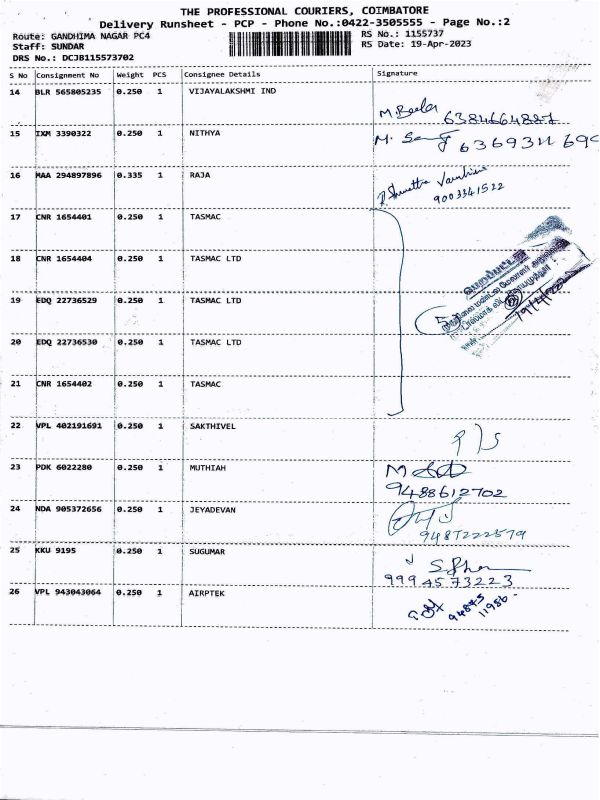 THE PROFESSIONAL COURIERS, COIMBATORE
Delivery Runsheet - PCP - Phone No.:0422-3505555 - Page No.:2
Route: GANDHIMA NAGAR PC4 RS No.: 1155737
Staff: SUNDAR RS Date: 19-Apr-2023
DRS No.: DCJB115573702
S No Consignment No Weight PCS Consignee Details Signature
14 BLR 565805235 0.250 1 VIJAYALAKSHMI IND
6384664887
15 IXM 3390322 0.250 1 NITHYA
16 MAA 294897896 0.335 1 RAJA
9003341522
17 CNR 1654401 0.250 1 TASMAC
18 CNR 1654404 0.250 1 TASMAC LTD
19 EDQ 22736529 0.250 1 TASMAC LTD
5
20 EDQ 22736530 0.250 1 TASMAC LTD
21 CNR 1654402 0.250 1 TASMAC
22 VPL 402191691 0.250 1 SAKTHIVEL
23 PDK 6022280 0.250 1 MUTHIAH
9488612702
24 NDA 905372656 0.250 1 JEYADEVAN
9487222579
25 KKU 9195 0.250 1 SUGUMAR
9994573223
26 VPL 943043064 0.250 1 AIRPTEK
94875
11986